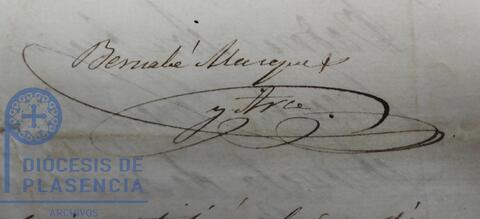 Bernabé Marquex
y Arce
DIÓCESIS DE
PLASENCIA
ARCHIVOS